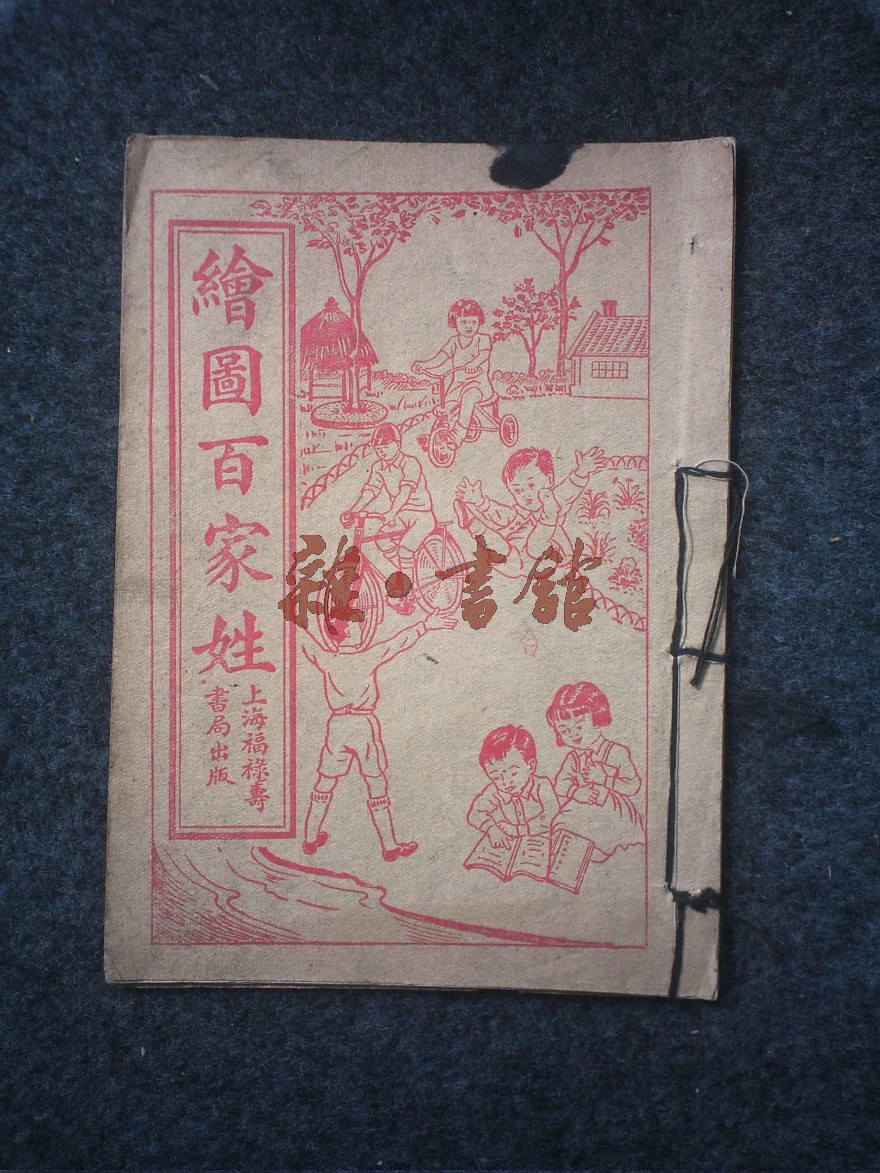 繪圖百家姓
上海福祿壽
書局出版
雜·書館